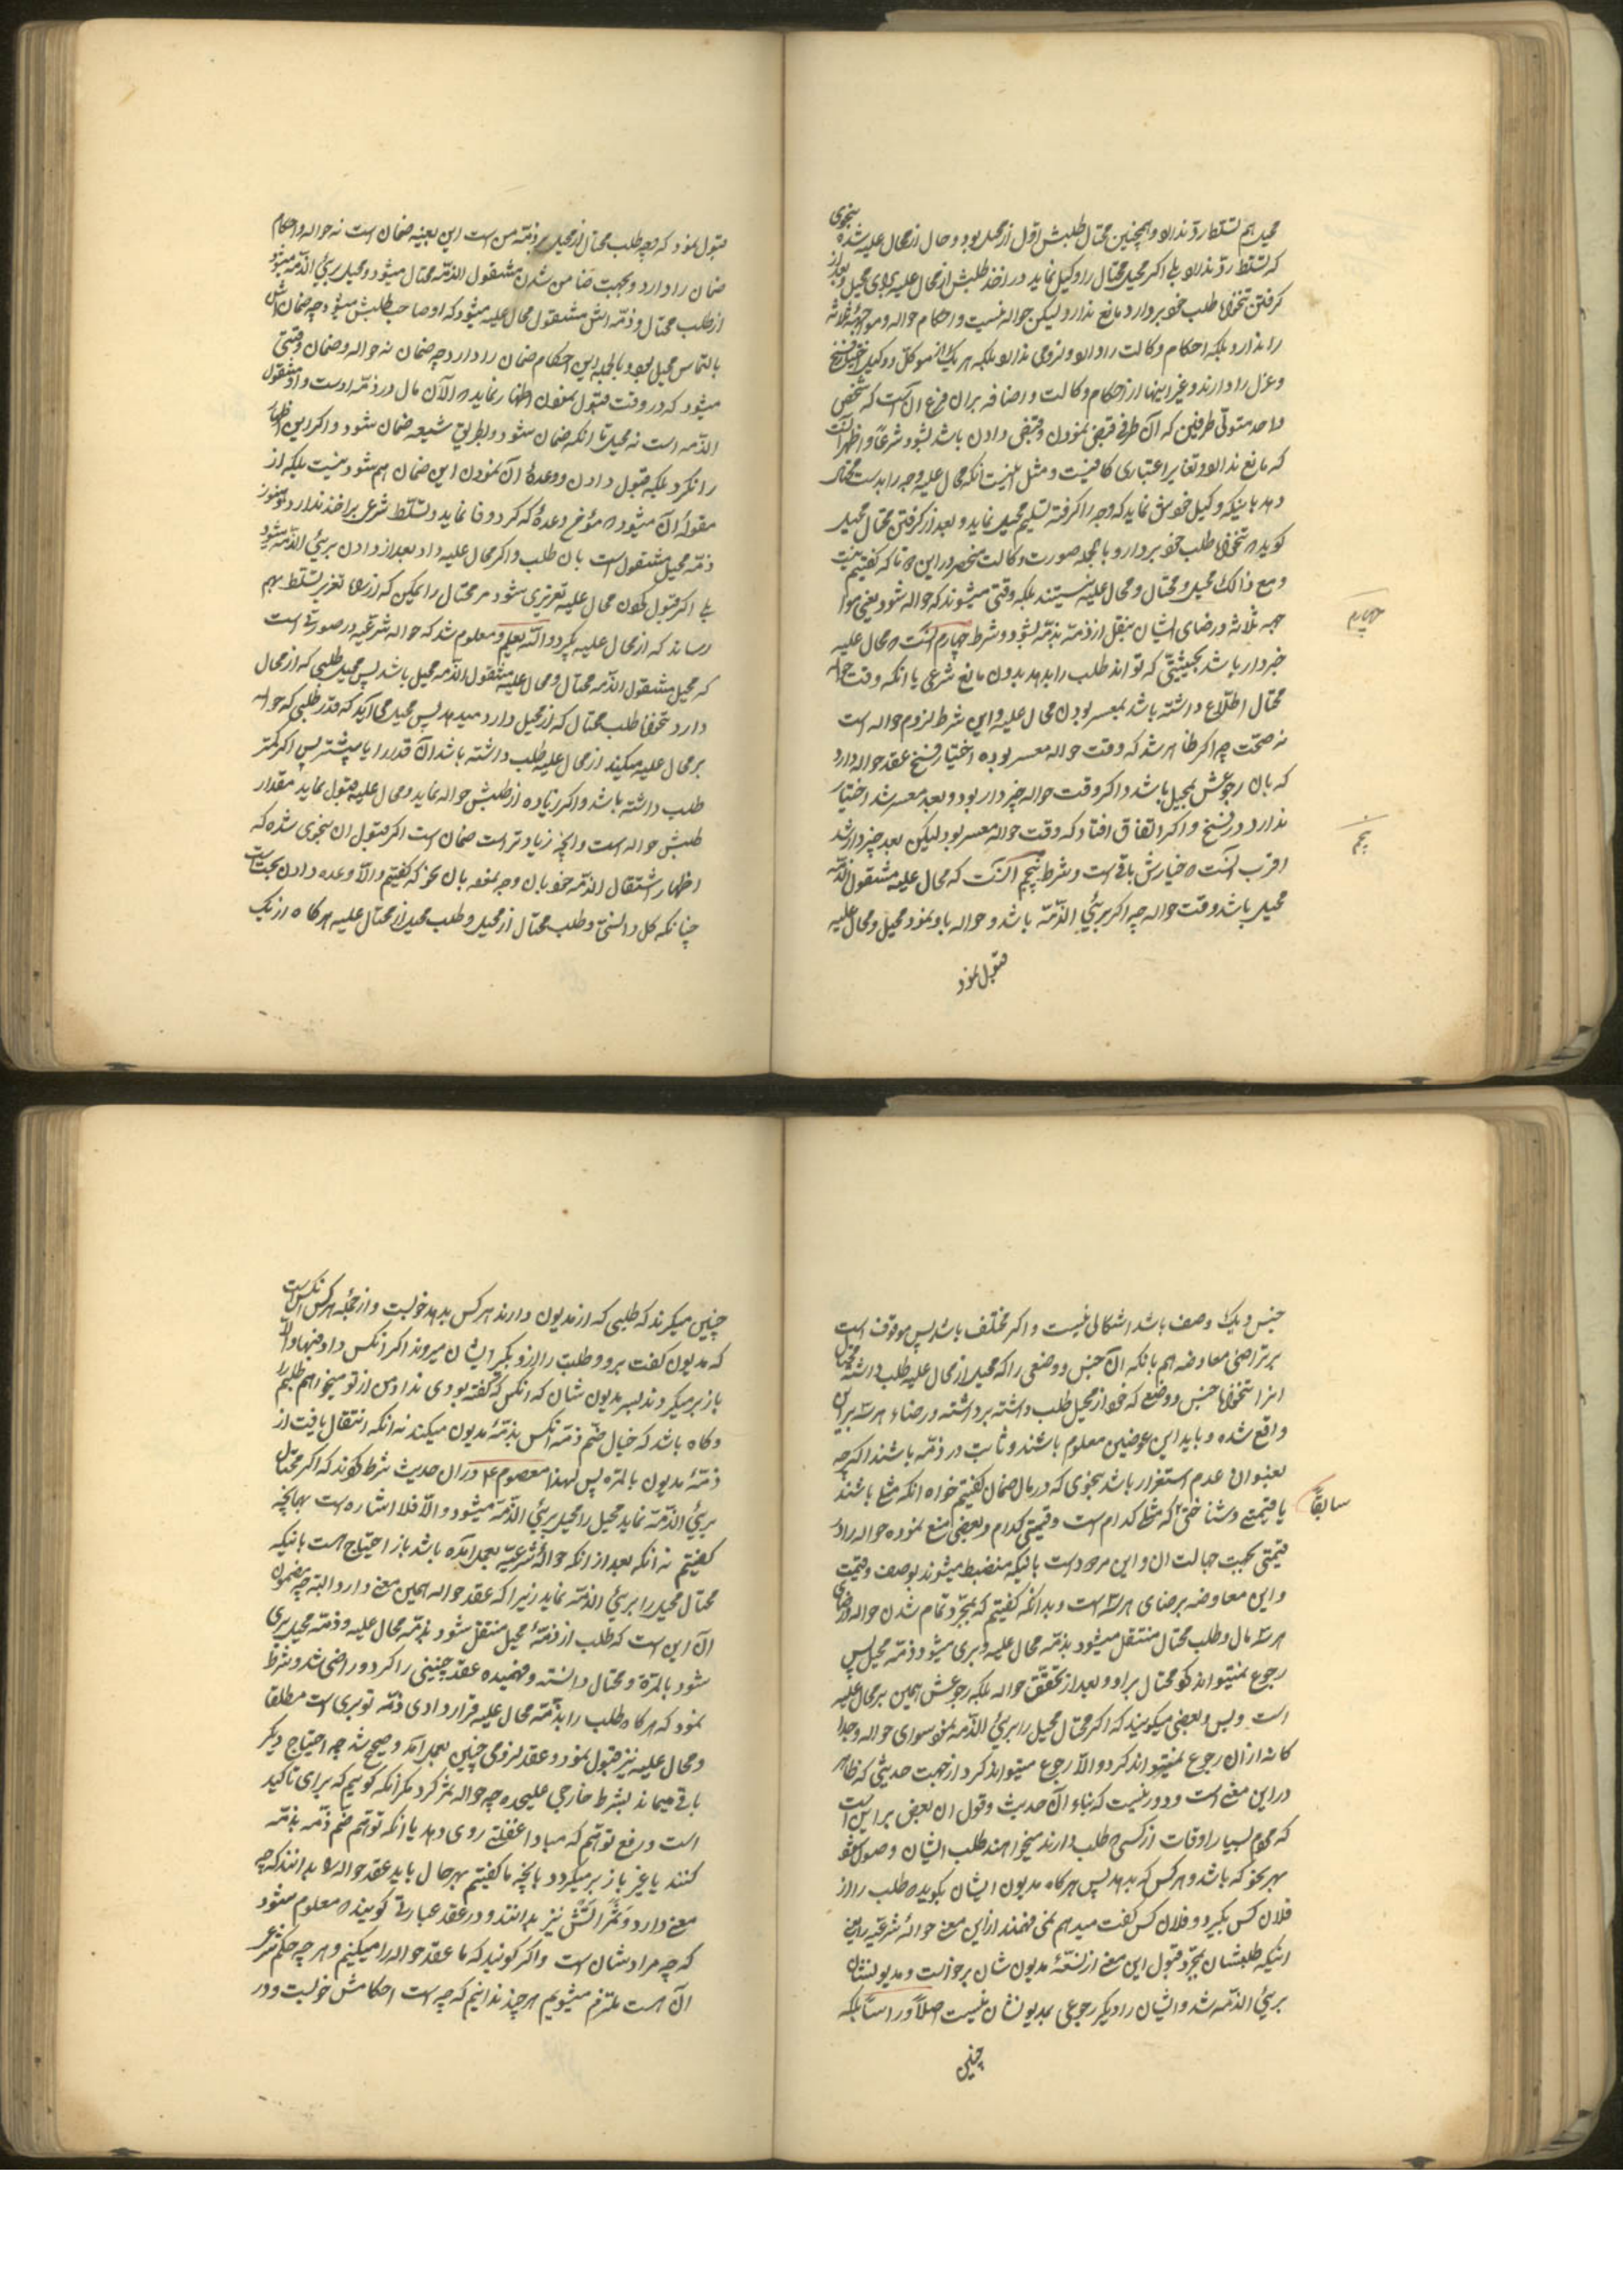 محیل هم تسلط رد ندارد و همچنین محتال طلبش اول از محیل بود و حال از محال علیه شده بنحوی
که تسلط رد ندارد بلی اگر محیل محتال را وکیل نماید در اخذ طلبش از محال علیه برای محیل و بعد از
گرفتن بعوض طلب خود بردارد مانع ندارد و لیکن حواله نیست و احکام حواله و موجبه ثلاثه
را ندارد بلکه احکام وکالت را دارد و لزومی ندارد بلکه هر یک از موکل و وکیل اختیار فسخ
و عزل را دارند و غیر اینها از احکام وکالت و اضافه بر ان فرع آنست که شخص
واحد متولی طرفین که آن طرفی قبض نمودن و قبض دادن باشد بشود شرعا و اظهر آنست
که مانع ندارد و تغایر اعتباری کافیست و مثل اینست آنکه محال علیه وجه را بدست محتال
دهد باینکه وکیل خودش نماید که وجه را گرفته تسلیم محیل نماید و بعد از گرفتن محتال محیل
گوید که بعوض طلب خود بردار و بالجمله صورت وکالت منحصر در این که تا که گفتیم نیست
و مع ذالک محیل و محتال و محال علیه نیستند بلکه وقتی میشوند که حواله شود یعنی موا
جبه ثلاثه و رضای ایشان بنقل از ذمه بذمه بشود و شرط چهارم آنست که محال علیه
چهارم
خبردار باشد بحیثیتی که تواند طلب را بدهد بدون مانع شرعی یا انکه وقت حواله
محتال اطلاع داشته باشد بمعسر بودن محال علیه و این شرط لزوم حواله است
نه صحت چه اگر ظاهر شد که وقت حواله معسر بوده اختیار فسخ عقد حواله دارد
که بان رجوعش بمحیل باشد و اگر وقت حواله چیزدار بود و بعد معسر شد اختیار
ندارد در فسخ و اگر اتفاق افتاد که وقت حواله معسر بود لیکن بعد چیزدار شد
پنجم
اقرب آنست که خیارش باقی است و شرط پنجم آنست که محال علیه مشغول الذمه
محیل باشد وقت حواله چه اگر بریٔ الذمه باشد و حواله باو نمود محیل و محال علیه
قبول نمود
قبول نمود که وجه طلب محتال از محیل بر ذمه من است این بعینه ضمان است نه حواله و احکام
ضمان را دارد و بجهت ضامن شدن مشغول الذمه محتال میشود و محیل بریٔ الذمه میشود
از طلب محتال و ذمه اش مشغول محال علیه میشود که او صاحب طلبش میشود چه ضمان اش
بالتماس محیل بود و بالجمله این احکام ضمان را دارد چه ضمان نه حواله و ضمان وقتی
میشود که در وقت قبول نمودن اظهار نماید که الآن مال در ذمه اوست و او مشغول
الذمه است نه محیل تا انکه ضمان شود و بطریق شیعه ضمان شود و اگر این اظهار
را نکرد بلکه قبول دادن و وعده آن نمودن این ضمان هم نشود نیست بلکه از
مقوله آن میشود که مؤخ وعده که کرد وفا نماید و تسلط شرعی بر اخذ ندارد و هنوز
ذمه محیل مشغول است بان طلب و اگر محال علیه داد بعد از دادن بریٔ الذمه میشود
بلی اگر قبول نکردن محال علیه تعزیری شود مر محتال را یمکن که از راه تغریر تسلط بهم
رساند که از محال علیه بگیرد و الله یعلم و معلوم شد که حواله شرعیه در صورتی است
که محیل مشغول الذمه محتال و محال علیه مشغول الذمه محیل باشد پس محیل طلبی که از محال
دارد بعوض طلب محتال که از محیل دارد میدهد پس محیل می‌آید که قدر طلبی که حواله
بر محال علیه میکند از محال علیه طلب داشته باشد آن قدر را یا بیشتر پس اگر کمتر
طلب داشته باشد و اگر زیاده از طلبش حواله نماید و محال علیه قبول نماید مقدار
طلبش حواله است و انچه زیادتر است ضمان است اگر قبول ان بنحوی شده که
اظهار اشتغال الذمه خود بان وجه نموده بان نحو که گفتیم و الا وعده دادن بحت است
چنانکه کل دانستی و طلب محتال از محیل و طلب محیل از محتال علیه هرگاه از یک
جنس و یک وصف باشد اشکالی نیست و اگر مختلف باشد پس موقوف است
بر تراضی معاوضه هم بانکه آن جنس و وضعی را که محیل از محال علیه طلب داشته محتال
انرا بعوض جنس و وضعی که خود از محیل طلب داشته برداشته و رضاء هر سه بر این
واقع شده و باید این عوضین معلوم باشند و ثابت در ذمه باشند اگر چه
بعنوان عدم استقرار باشد بنحوی که در مال ضمان گفتیم خواه انکه مثلی باشند
سابقا
یا قیمتی و شناختی که مثلی کدام است و قیمتی کدام و بعضی منع نموده حواله را در
قیمتی بجهت جهالت ان و این مردود است باینکه منضبط میشوند بوصف و قیمت
و این معاوضه برضای هر سه است و بدانکه گفتیم که بمجرد تمام شدن حواله و رضای
هر سه مال و طلب محتال منتقل میشود بذمه محال علیه و بری میشود ذمه محیل پس
رجوع نمیتواند کرد محتال بر او و بعد از تحقق حواله بلکه رجوعش همین بر محال علیه
است و بس و بعضی میگویند که اگر محتال محیل را بریٔ الذمه نمود سوای حواله و جدا
کانه از ان رجوع نمیتواند کرد و الا رجوع میتواند کرد از جهت حدیثی که ظاهر
در این معنی است و دور نیست که بناء آن حدیث و قول ان بعض بر این است
که مردم بسیار اوقات از کسی که طلب دارند میخواهند طلب ایشان وصول شود
بهر نحو که باشد و هر کس که بدهد پس هرگاه مدیون ایشان بگوید که طلب را از
فلان کس بگیر و فلان کس گفت میدهم نمی فهمند از این معنی حواله شرعیه را یعنی
اینکه طلبشان بمجرد قبول این معنی از ذمه مدیون شان برخواست و مدیونشان
بریٔ الذمه شد و ایشان را دیگر رجوعی بمدیونشان نیست اصلا و راسا بلکه
چنین
چنین میگیرند که طلبی که از مدیون دارند هر کس بدهد خوبست و از جمله هر کس آن کس است
که مدیون گفت برو و طلبت را از او بگیر ایشان میروند اگر انکس داد فبها و الا
باز برمیگردند بسر مدیون شان که انکس که گفته بودی نداد من از تو میخواهم طلبم را
و گاه باشد که خیال ضم ذمه انکس بذمه مدیون میکنند نه انکه انتقال یافت از
ذمه مدیون بالمره پس لهذا معصوم ع در ان حدیث شرط کردند که اگر محتال
بریٔ الذمه نماید محیل را محیل بریٔ الذمه میشود و الا فلا اشاره است بهانچه
گفتیم نه آنکه بعد از انکه حواله شرعیه بعمل آمده باشد باز احتیاج هست باینکه
محتال محیل را بریٔ الذمه نماید زیرا که عقد حواله همین معنی دارد البته چه مضمون
آن این است که طلب از ذمه محیل منتقل شود بذمه محال علیه و ذمه محیل بری
شود بالمرة و محتال دانسته و فهمیده عقد چنینی را کرد و راضی شد و شرط
نمود که هرگاه طلب را بذمه محال علیه قرار دادی ذمه تو بری است مطلقا
و محال علیه نیز قبول نمود و عقد لزومی چنین بعمل آمد و صحیح شد چه احتیاج دیگر
باقی میماند بشرط خارجی علیحده چه حواله نمر کرد مگر انکه گوئیم که برای تاکید
است و رفع توهم که مبادا غفلتی روی دهد یا انکه توهم ضم ذمه بذمه
کنند یا غیر باز برمیگردد بانچه ما گفتیم بهر حال باید عقد حواله را بدانند که چه
معنی دارد و ثمراتش نیز بدانند و در عقد عبارتی گویند که معلوم شود
که چه مرادشان است و اگر گویند که ما عقد حواله را میکنیم و هر چه حکم شرعی
آن هست ملتزم میشویم هر چند ندانیم که چه است احکامش خوبست و در